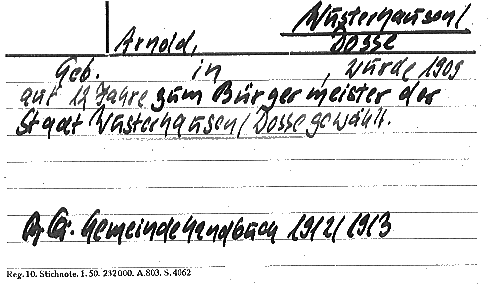 Wusterhausen/
Arnold, Dosse
Geb. in , wurde 1909
auf 12 Jahre zum Bürgermeister der
Stadt Wusterhausen/Dosse gewählt.
Gemeindehandbuch 1912/1913
Reg. 10. Stichnote. I. 50. 232000. A. 803. S. 4062